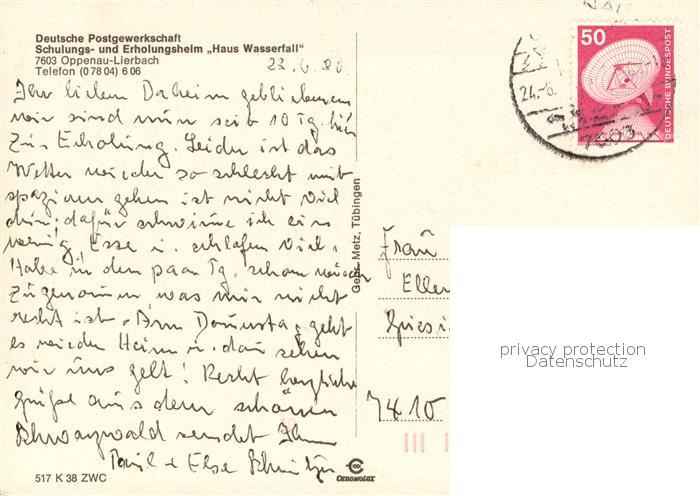 Deutsche Postgewerkschaft
Schulungs- und Erholungsheim „Haus Wasserfall"
7603 Oppenau-Lierbach
Telefon (0 78 04) 6 06
23.6.80
Ihr lieben Daheim gebliebenen
wir sind nun seit 10 Tg. hier
zur Erholung. Leider ist das
Wetter wieder so schlecht mit
spazieren gehen ist nicht viel
drin. dafür schwimme ich ein
wenig, Esse u. schlafen viel.
Habe in den paar Tg. schon wieder
zugenommen, was mir nicht
recht ist. Am Donnstag geht
es wieder Heim u. dan sehen
wir uns gelt! Recht herzliche
grüße aus dem schönen
Schwarzwald sendet Ihnen
Paul + Else
517 K 38 ZWC
CHROMOLUX
Gebr. Metz, Tübingen
50
DEUTSCHE BUNDESPOST
24.-6.
7603
Frau
Eller
7410
privacy protection
Datenschutz